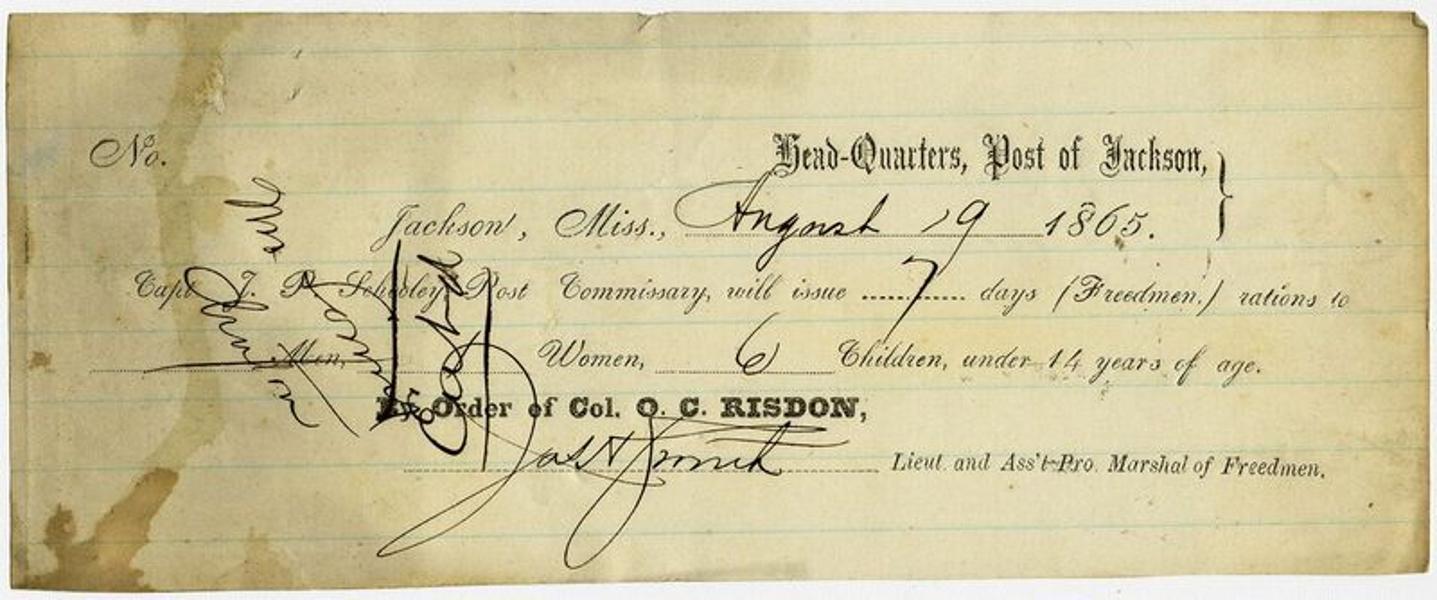 No.
Head-Quarters, Post of Jackson, }
Jackson, Miss., August 19 1865.
Capt J. R. Schooley, Post Commissary, will issue ......7...... days (Freedmen.) rations to
Men, Women, 6 Children, under 14 years of age.
By Order of Col. O. C. RISDON,
Jas Lieut and Ass't Pro. Marshal of Freedmen.